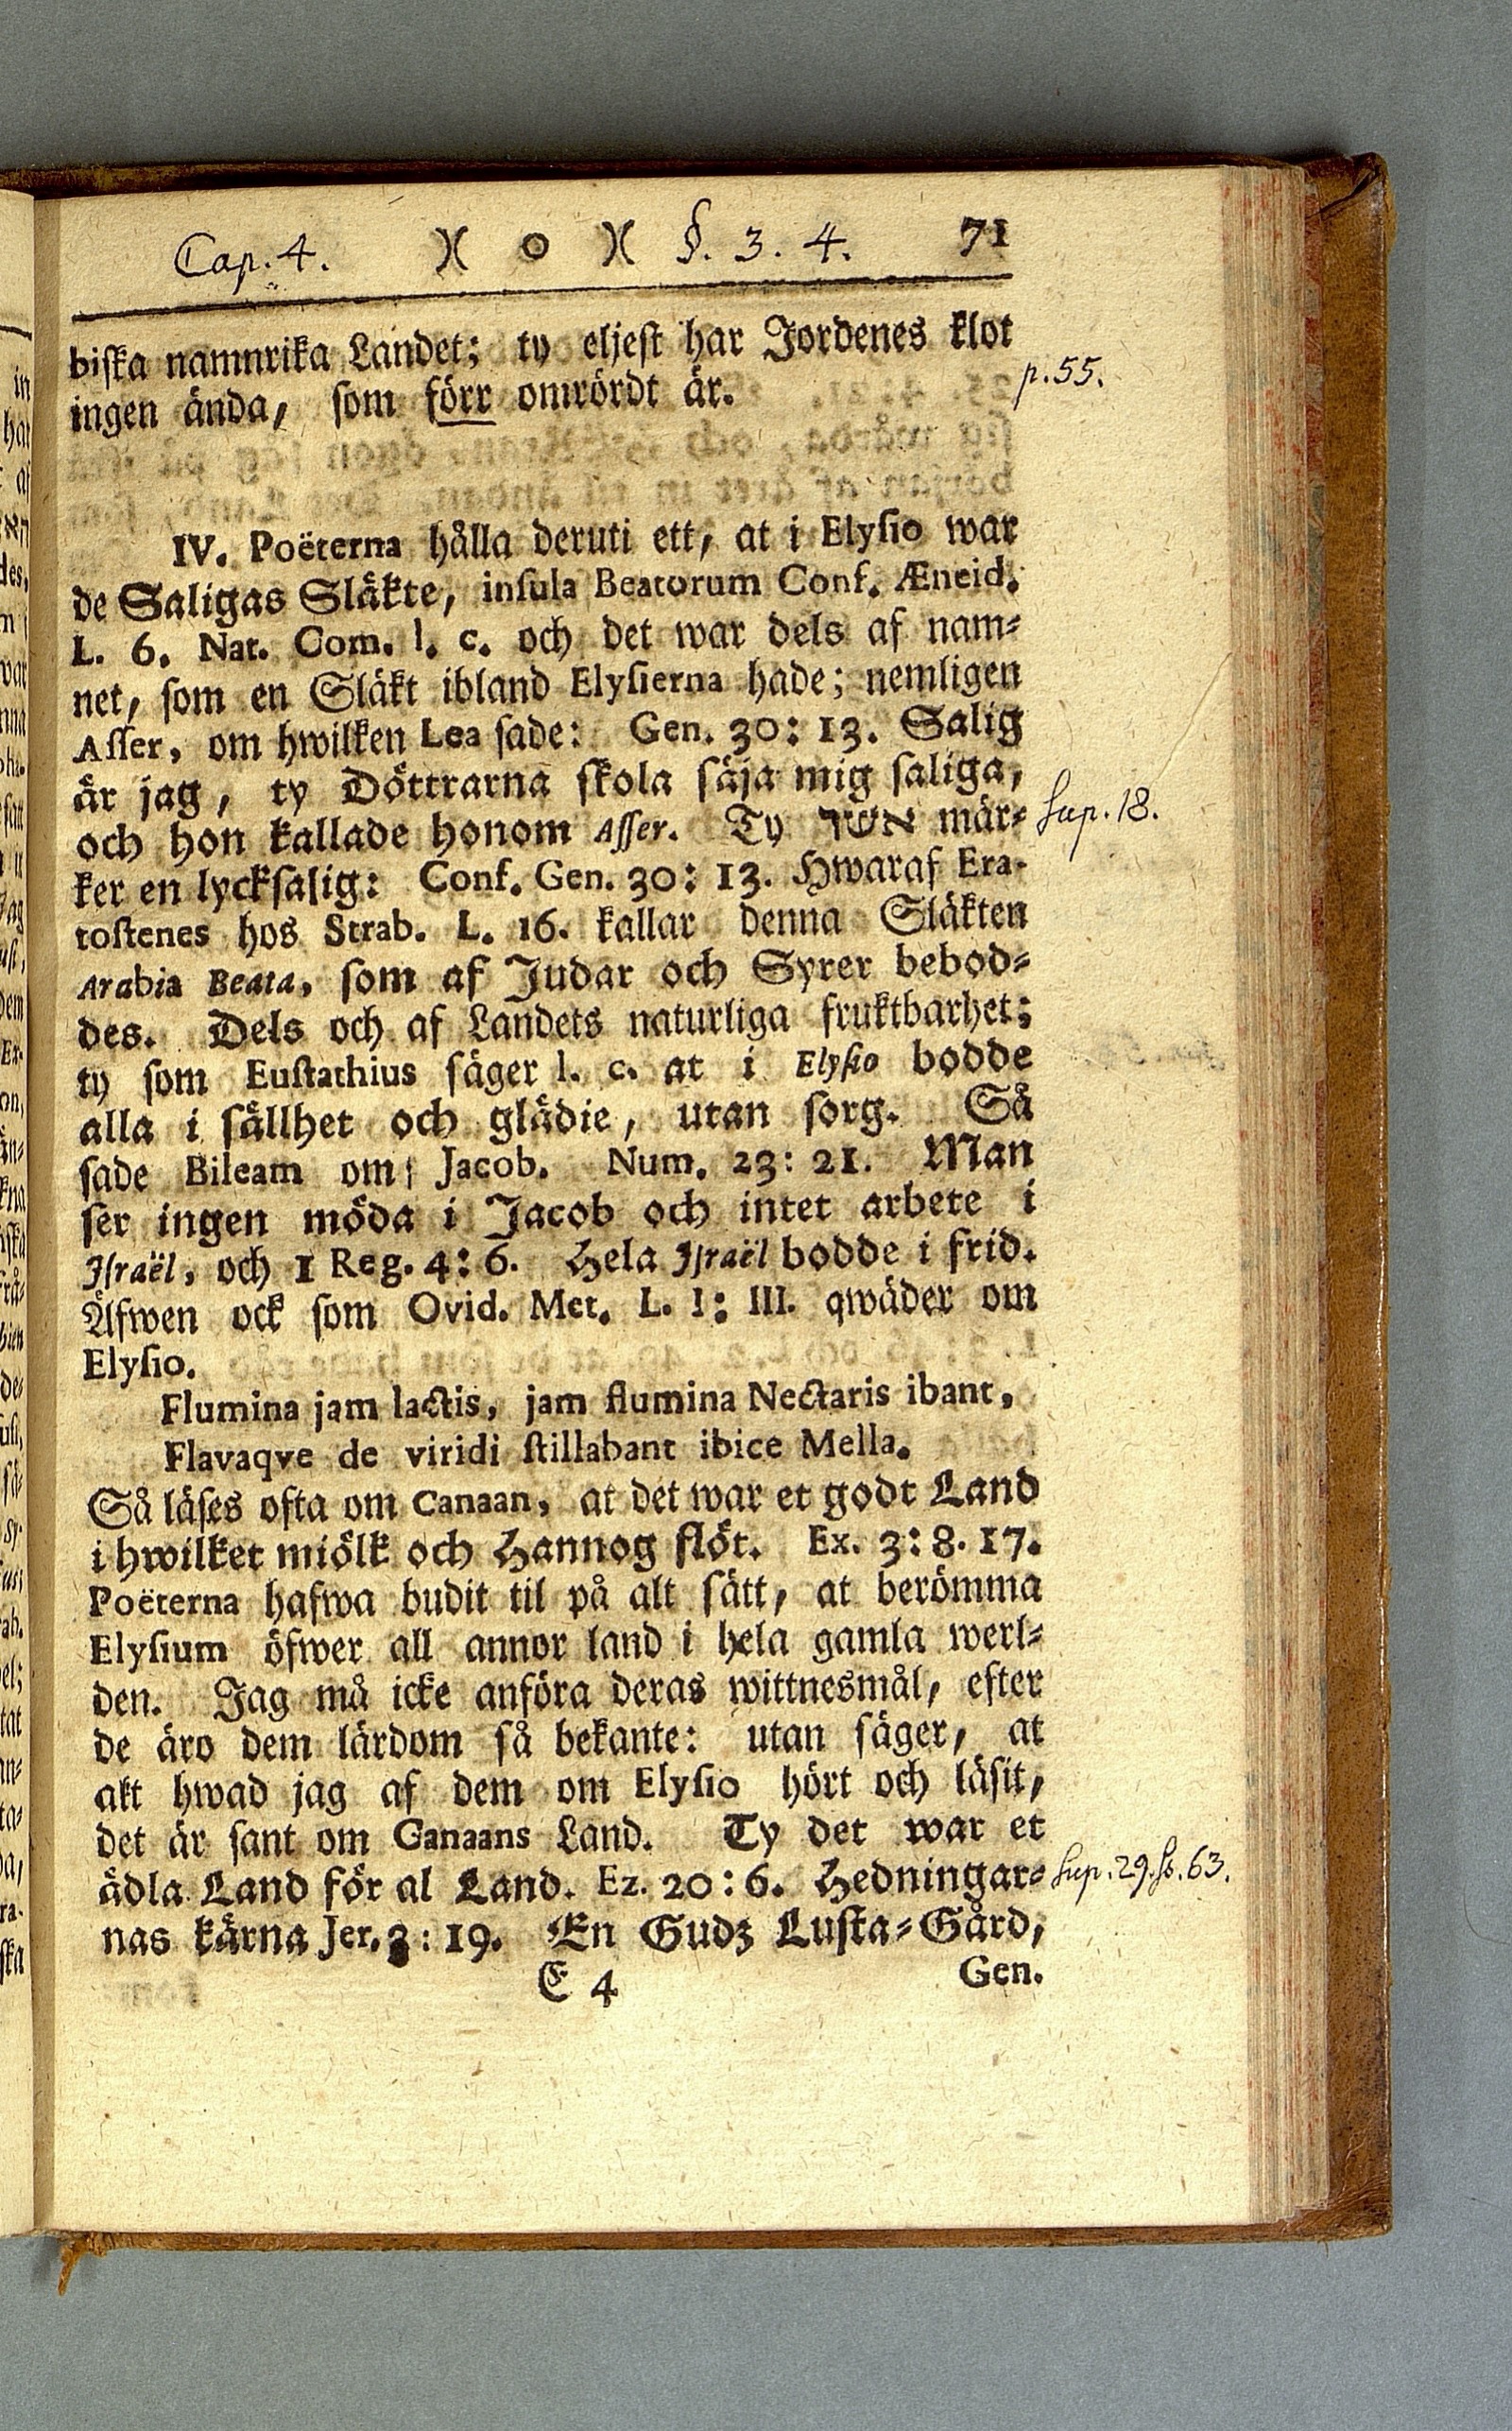 Cap. 4. )( o )( §. 3. 4. 71
biska namnrika Landet; ty eljest har Jordenes klot
ingen ända, som förr omrördt är.
p. 55.
IV. Poëterna hålla deruti ett, at i Elysio war
de Saligas Släkte, insula Beatorum Conf. Æneid.
L. 6. Nat. Com. l. c. och det war dels af nam-
net, som en Släkt ibland Elysierna hade; nemligen
Asser, om hwilken Lea sade: Gen. 30: 13. Salig
är jag, ty Döttrarna skola säja mig saliga,
och hon kallade honom Asser. Ty אשר mär-
Sup. 18.
ker en lycksalig: Conf. Gen. 30: 13. Hwaraf Era-
tostenes hos Strab. L. 16. kallar denna Släkten
Arabia Beata, som af Judar och Syrer bebod-
des. Dels och af Landets naturliga fruktbarhet;
ty som Eustathius säger l. c. at i Elysio bodde
alla i sällhet och glädie, utan sorg. Så
sade Bileam om Jacob. Num. 23: 21. Man
ser ingen möda i Jacob och intet arbete i
Israël, och 1 Reg. 4: 6. Hela Israël bodde i frid.
Äfwen ock som Ovid. Met. L. I: III. qwäder om
Elysio.
Flumina jam lactis, jam flumina Nectaris ibant,
Flavaqve de viridi stillabant ibice Mella.
Så läses ofta om Canaan, at det war et godt Land
i hwilket miölk och Hannog flöt. Ex. 3: 8. 17.
Poëterna hafwa budit til på alt sätt, at berömma
Elysium öfwer all annor land i hela gamla werl-
den. Jag må icke anföra deras wittnesmål, efter
de äro dem lärdom så bekante: utan säger, at
akt hwad jag af dem om Elysio hört och läsit,
det är sant om Ganaans Land. Ty det war et
ädla Land för al Land. Ez. 20: 6. Hedningar-
Sup. 29. 63.
nas kärna Jer. 3: 19. En Gudz Lusta-Gård,
E 4 Gen.